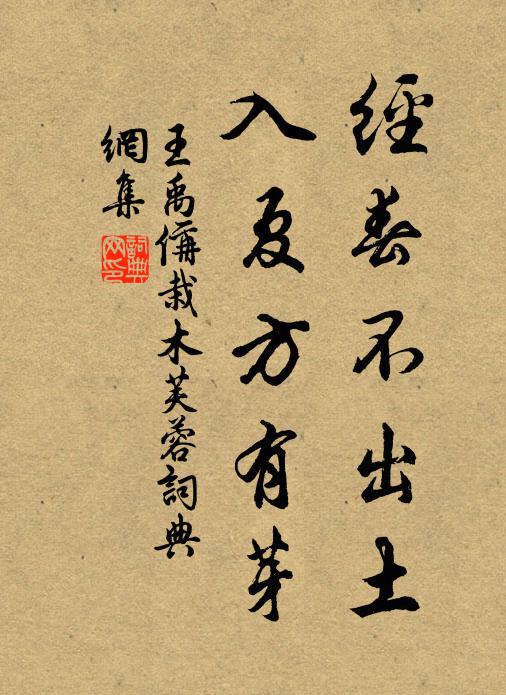 經春不出土
入夏方有芽
王禹偁栽木芙蓉詞典
網集
詞典
网印